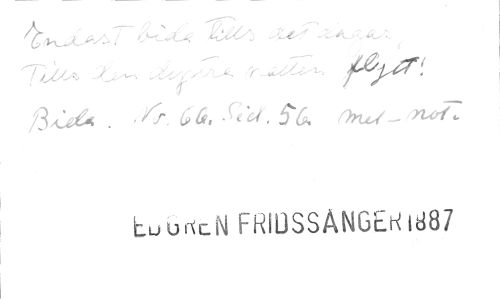 Endast bida tills det dagas,
Tills den dystra natten flytt!
Bida. No. 66. Sid. 56. mel-not.
EDGREN FRIDSSÅNGER 1887